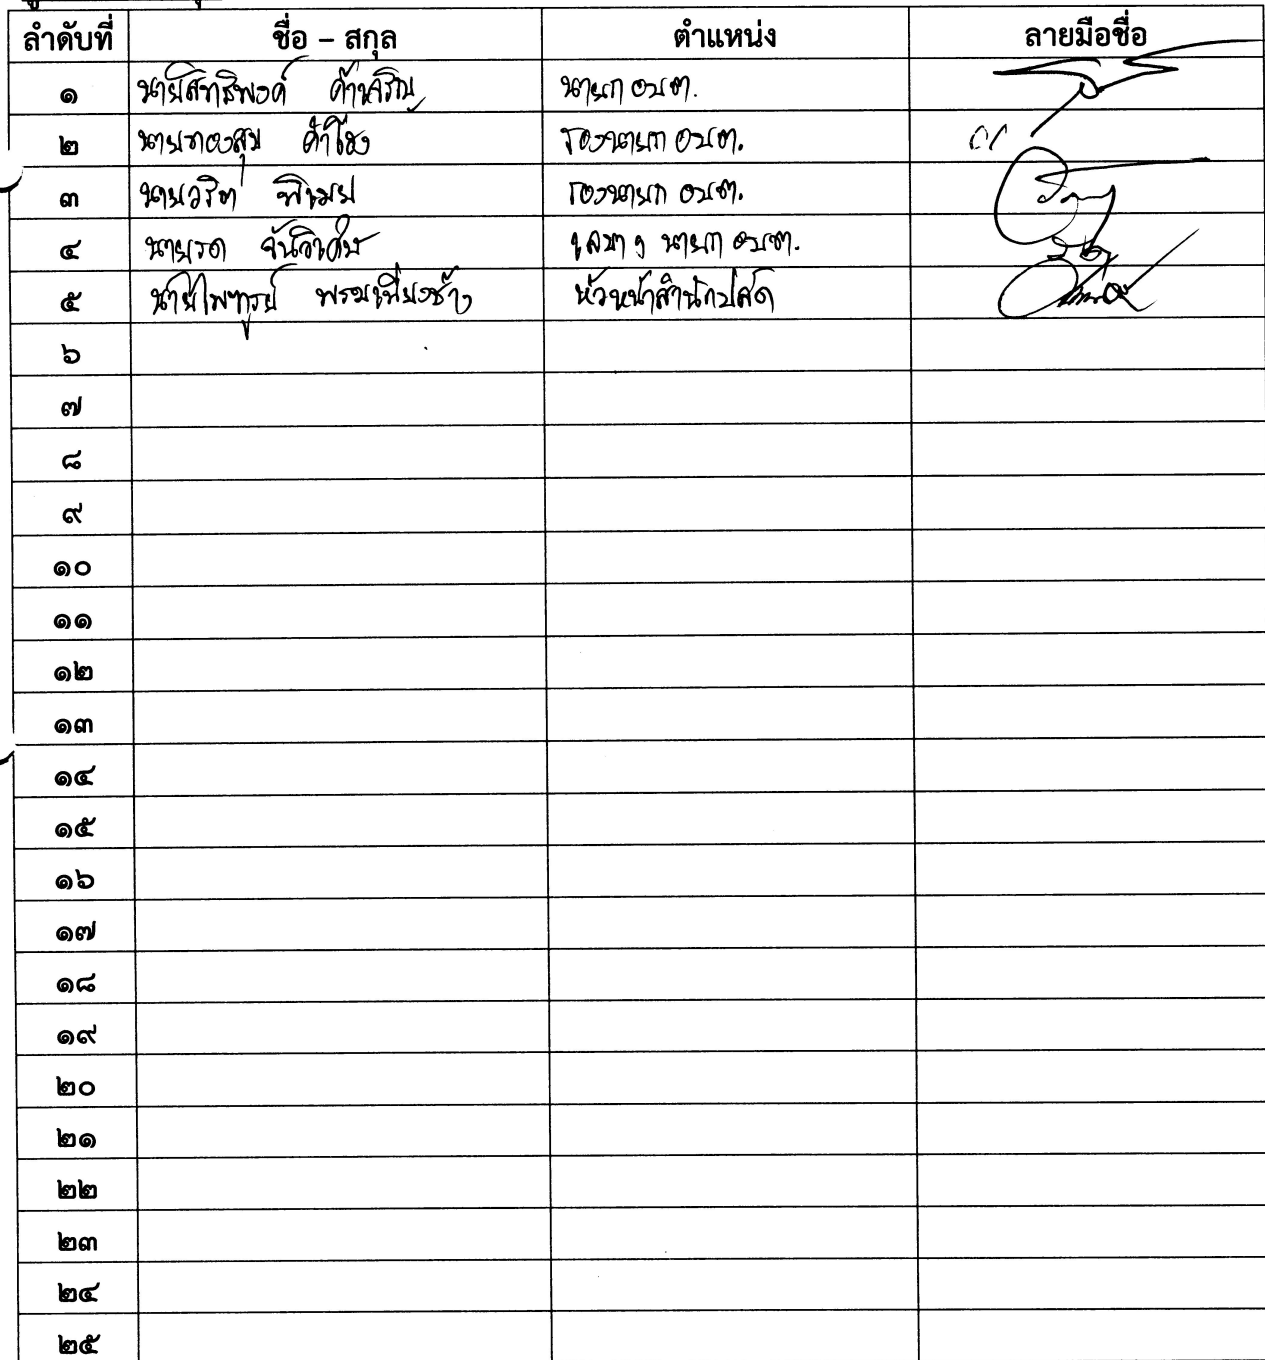 ลำดับที่ ชื่อ – สกุล ตำแหน่ง ลายมือชื่อ
๑ นายสิทธิพงค์ ค้าเจริญ นายก อบต.
๒ นายทองสุข คำโฮง รองนายก อบต.
๓ นายวริต พิเมย รองนายก อบต.
๔ นายรด เลขาฯ นายก อบต.
๕ นายไพฑูรย์ พรมเพียงช้าง หัวหน้าสำนักปลัด
๖
๗
๘
๙
๑๐
๑๑
๑๒
๑๓
๑๔
๑๕
๑๖
๑๗
๑๘
๑๙
๒๐
๒๑
๒๒
๒๓
๒๔
๒๕